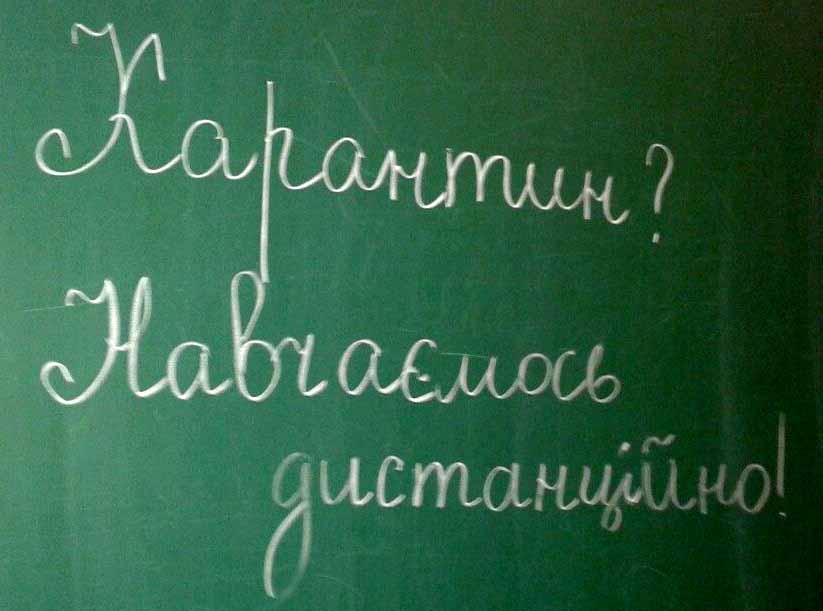 Карантин?
Навчаємось
дистанційно!